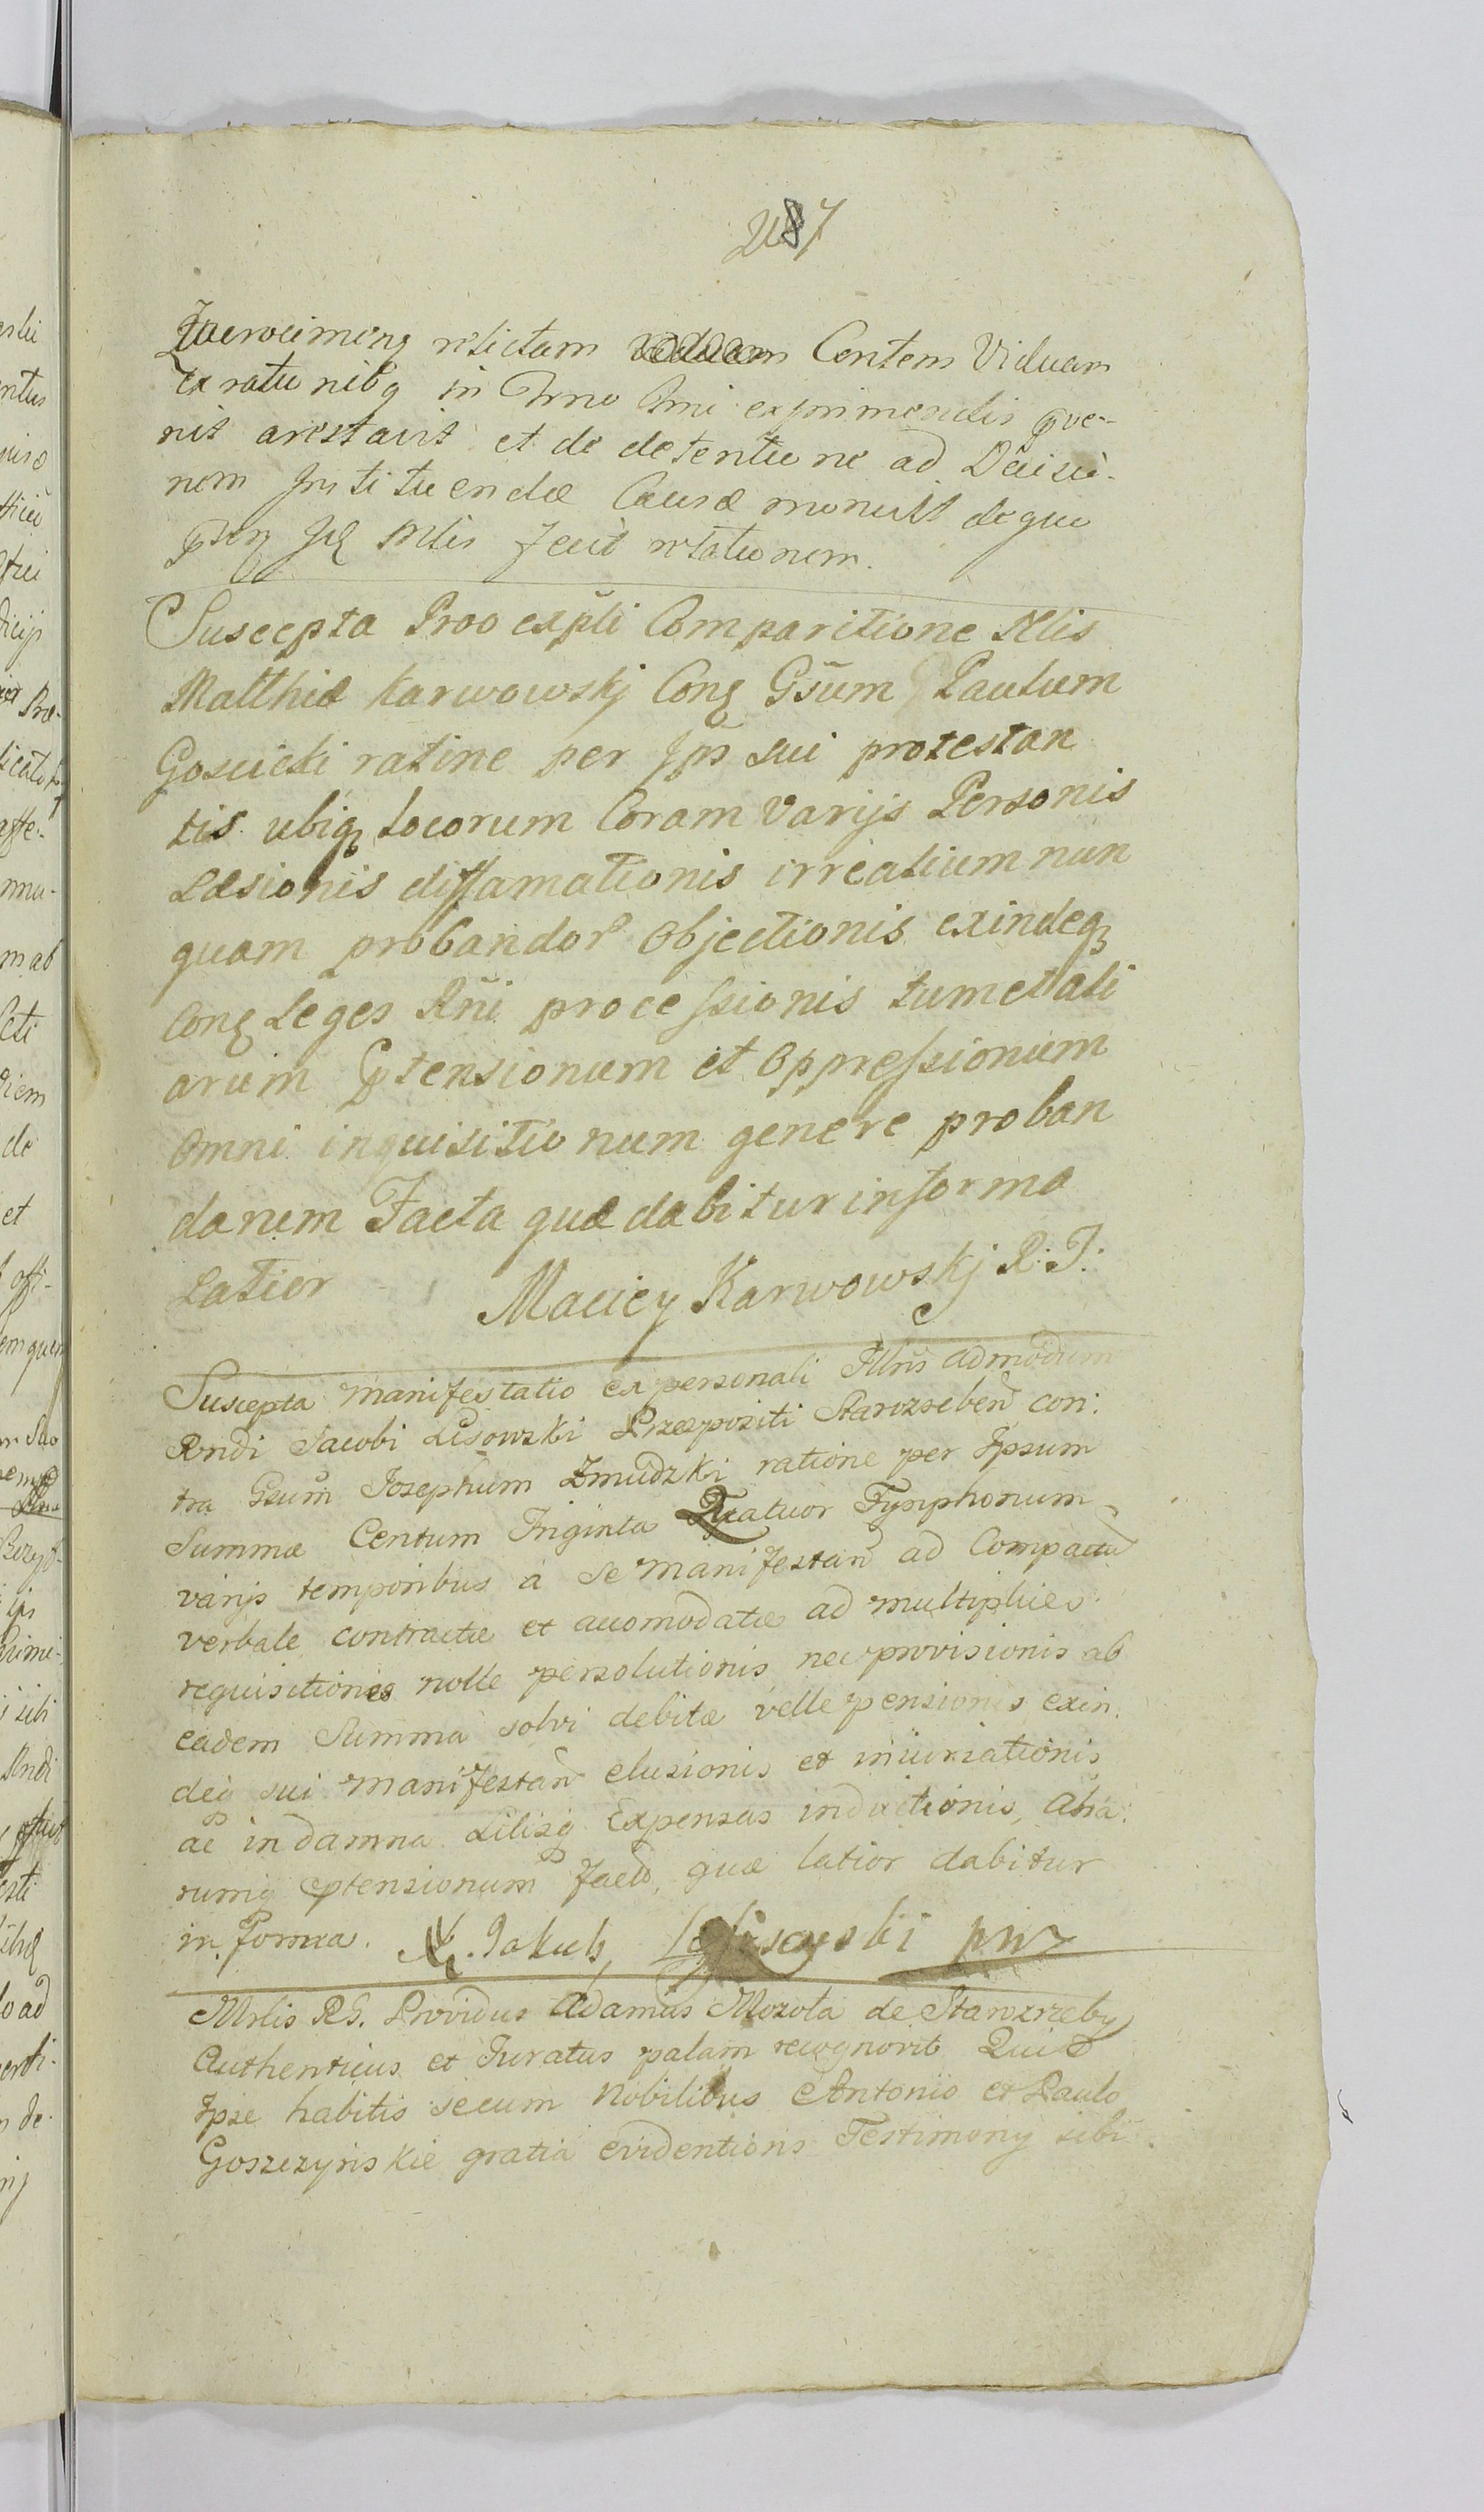 287
relictam Contem Viduam
ex rationibq in Trno Omi exprimendis pve-
nit arestavit et de detentione ad Decisio-
nem Instituendæ Causæ monuit de quo
fecit relationem.
Suscepta Proo expli Comparitione Nlis
Matthiæ Karwowskj Conq Gsum Paulum
Goscicki ratine per Ips sui protestan
tis ubiq locorum Coram Varijs Personis
Læsionis diffamationis irreatium nun
quam probandor Objectionis exindeq
Conq Leges Rni processionis tumet ali
arum ptensionum et Oppressionum
Omni inquisitionum genere proban
darum Facta quæ dabitur in forma
Latior Maciey Karwowskj R: J:
Suscepta Manifestatio ex personali Illris admodum
Rndi Jacobi Lisowski Præpositi Starozreben con:
tra Gsum Josephum Zmudzki ratione per Ipsum
Summæ Centum Triginta Quatuor Tynphonum
varijs temporibus a se Manifestan ad Compactu
verbale contractæ et accomodatæ ad multiplices
requisitiones nolle persolutionis nec provisionis ab
eadem Summa solvi debitæ velle pensionis exin
deq sui Manifestan elusionis et iniuriationis
ac in damna Litisq Expensas inductionis, Alia:
rumq ptensionum facto, quæ latior dabitur
in forma. X. Jakub Lisowski
Mrlis RG. Providus Adamus Mozola de Starozrzeby
Authenticus et Juratus palam recognovit Quia
Ipse habitis secum Nobilibus Antonio et Paulo
Goszczynskie gratia evidentioris Testimonij sibi